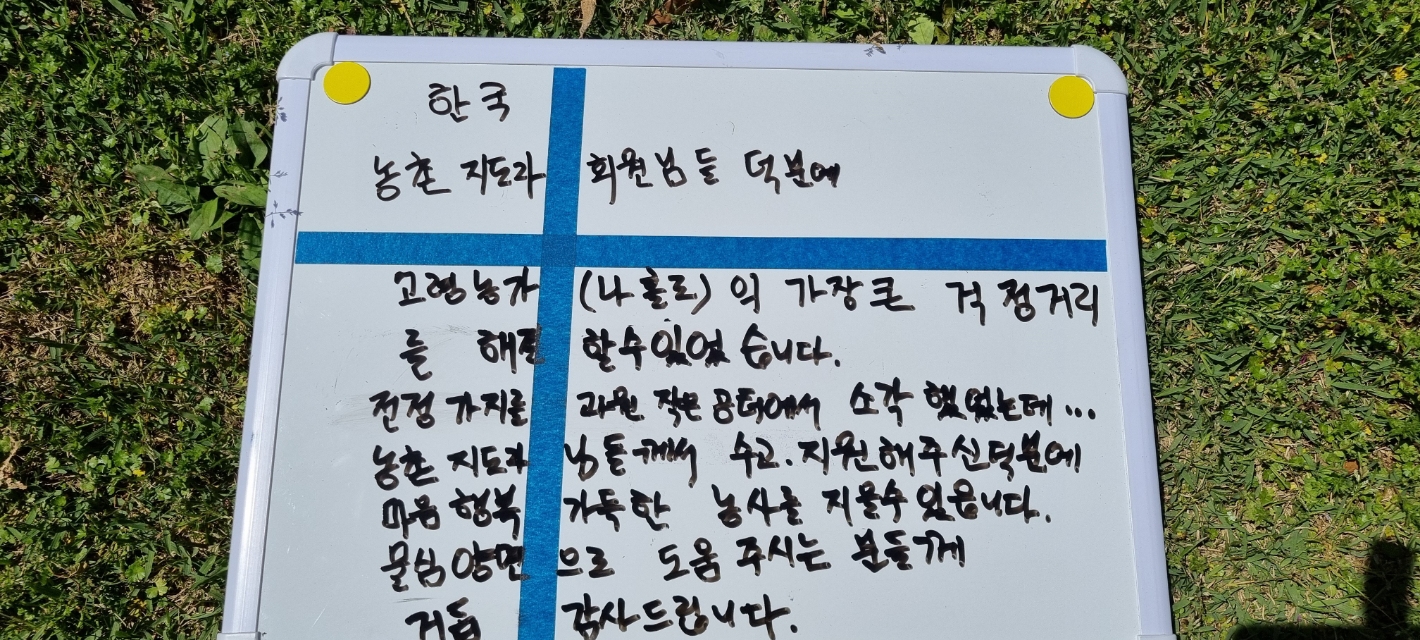 한국
농촌 지도과 회원님들 덕분에
고령농가 (나홀로)의 가장큰 걱정거리
를 해결 할수있었습니다.
전정 가지를 과원 작은 공터에서 소각 했었는데...
농촌 지도과 님들께서 수고.지원해주신덕분에
마음 행복 가득한 농사를 지을수있읍니다.
물심양면으로 도움 주시는 분들께
거듭 감사드립니다.